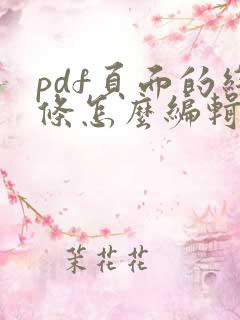 pdf頁面的線
條怎麼編輯
茉花花